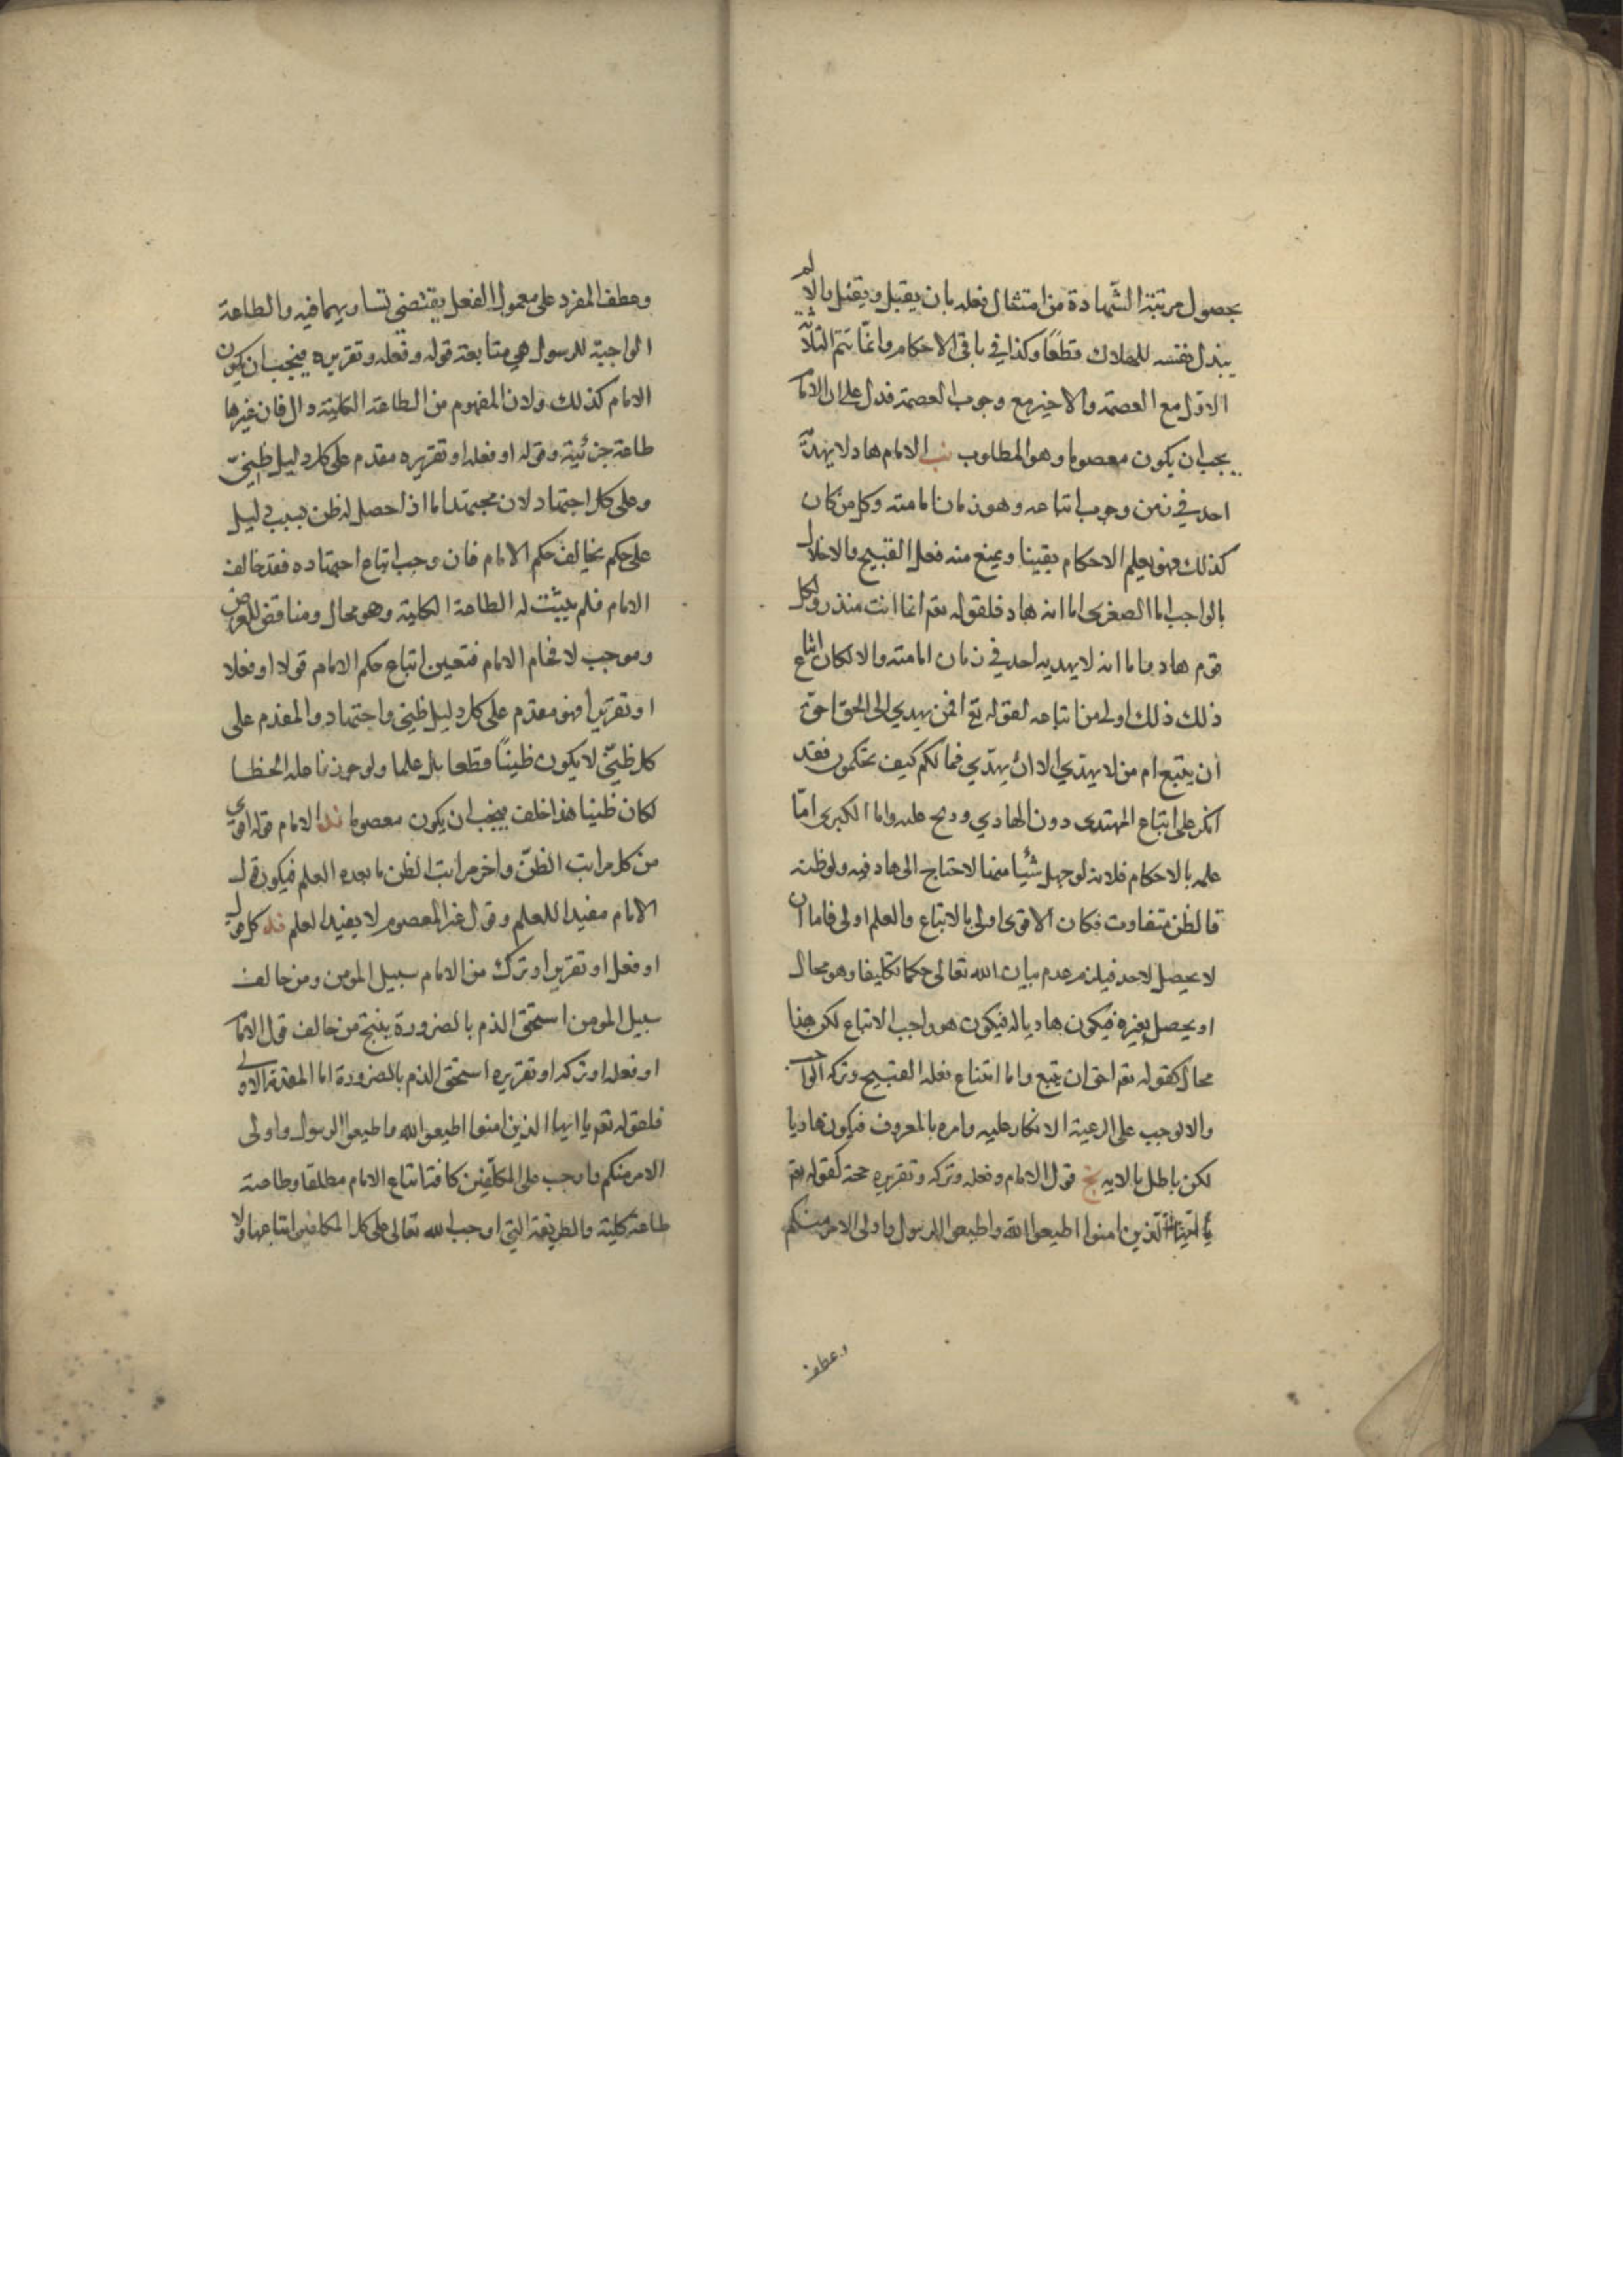 بحصول مرتبة الشهادة من امتثال فعله بان يقبل ويقتل والا لم
يبذل نفسه للهلاك قطعا وكذا في باقي الاحكام وانما يتم الثلاثة
الاول مع العصمة والاخير مع وجوب العصمة فدل على ان الاما
يجب ان يكون معصوما وهو المطلوب نب الامام هاد لا يهديه
احد في زمن وجوب اتباعه وهو زمان امامته وكل من كان
كذلك فهو يعلم الاحكام يقينا ويمنع منه فعل القبيح والاخلال
بالواجب اما الصغرى اما انه هاد فلقوله تعم انما انت منذر ولكل
قوم هاد واما انه لا يهديه احد في زمان امامته والا لكان اتباع
ذلك ذلك اولى من اتباعه لقوله تع افمن يهدي الى الحق احق
ان يتبع ام من لا يهدي الا ان يهدي فما لكم كيف تحكمون فقد
انكر على اتباع المهتدى دون الهادي ووبخ عليه واما الكبرى اما
علمه بالاحكام فلانه لو جهل شئيا منها لاحتاج الى هاد فيه ولو ظنه
فالظن متفاوت فكان الاقوى اولى بالاتباع والعلم اولى فاما ان
لا يحصل لاحد فيلزم عدم بيان الله تعالى حكما تكليفا وهو محال
او يحصل بغيره فيكون هاديا له فيكون هو واجب الاتباع لكن هذا
محال كقوله تعم احق ان يتبع واما امتناع فعله القبيح وتركه الواجب
والا لوجب على الرعية الانكار عليه وامره بالمعروف فيكون هاديا
لكن باطل بالايه نج قول الامام وفعله وتركه وتقريره حجة كقوله تعم
يا ايها الذين امنوا اطيعوا الله واطيعوا الرسول واولى الامر منكم
وعطف
وعطف المفرد على معمول الفعل يقتضى تساويهما فيه والطاعة
الواجبة للرسول هي متابعة قوله وفعله وتقريره فيجب ان يكون
الامام كذلك ولان المفهوم من الطاعة الكلية وال فان غيرها
طاعة جزئية وقوله او فعله او تقريره مقدم على كل دليل ظني
وعلى كل اجتهاد لان مجتهدا ما اذا حصل له ظن بسبب دليل
على حكم يخالف حكم الامام فان وجب اتباع اجتهاده فقد خالف
الامام فلم يثبت له الطاعة الكلية وهو محال ومناقض للغرض
وموجب لافحام الامام فتعين اتباع حكم الامام قولا او فعلا
او تقريرا فهو مقدم على كل دليل ظني واجتهاد والمقدم على
كل ظني لا يكون ظنيا قطعا بل علما ولو جوزنا عليه الخطا
لكان ظنيا هذا خلف فيجب ان يكون معصوما ند الامام قوله اقوى
من كل مراتب الظن واخر مراتب الظن ما بعده العلم فيكون قول
الامام مفيدا للعلم وقول غير المعصوم لا يفيد العلم نه كل قول
او فعل او تقرير او ترك من الامام سبيل المومن ومن خالف
سبيل المومن استحق الذم بالضرورة ينتج من خالف قول الاما
او فعله او تركه او تقريره استحق الذم بالضرورة اما المقدمة الاولى
فلقوله تعم يا ايها الذين امنوا اطيعوا الله واطيعوا الرسول واولى
الامر منكم فاوجب على المكلفين كافة اتباع الامام مطلقا وطاعته
طاعة كلية والطريقة التي اوجب الله تعالى على كل المكلفين اتباعها ولا